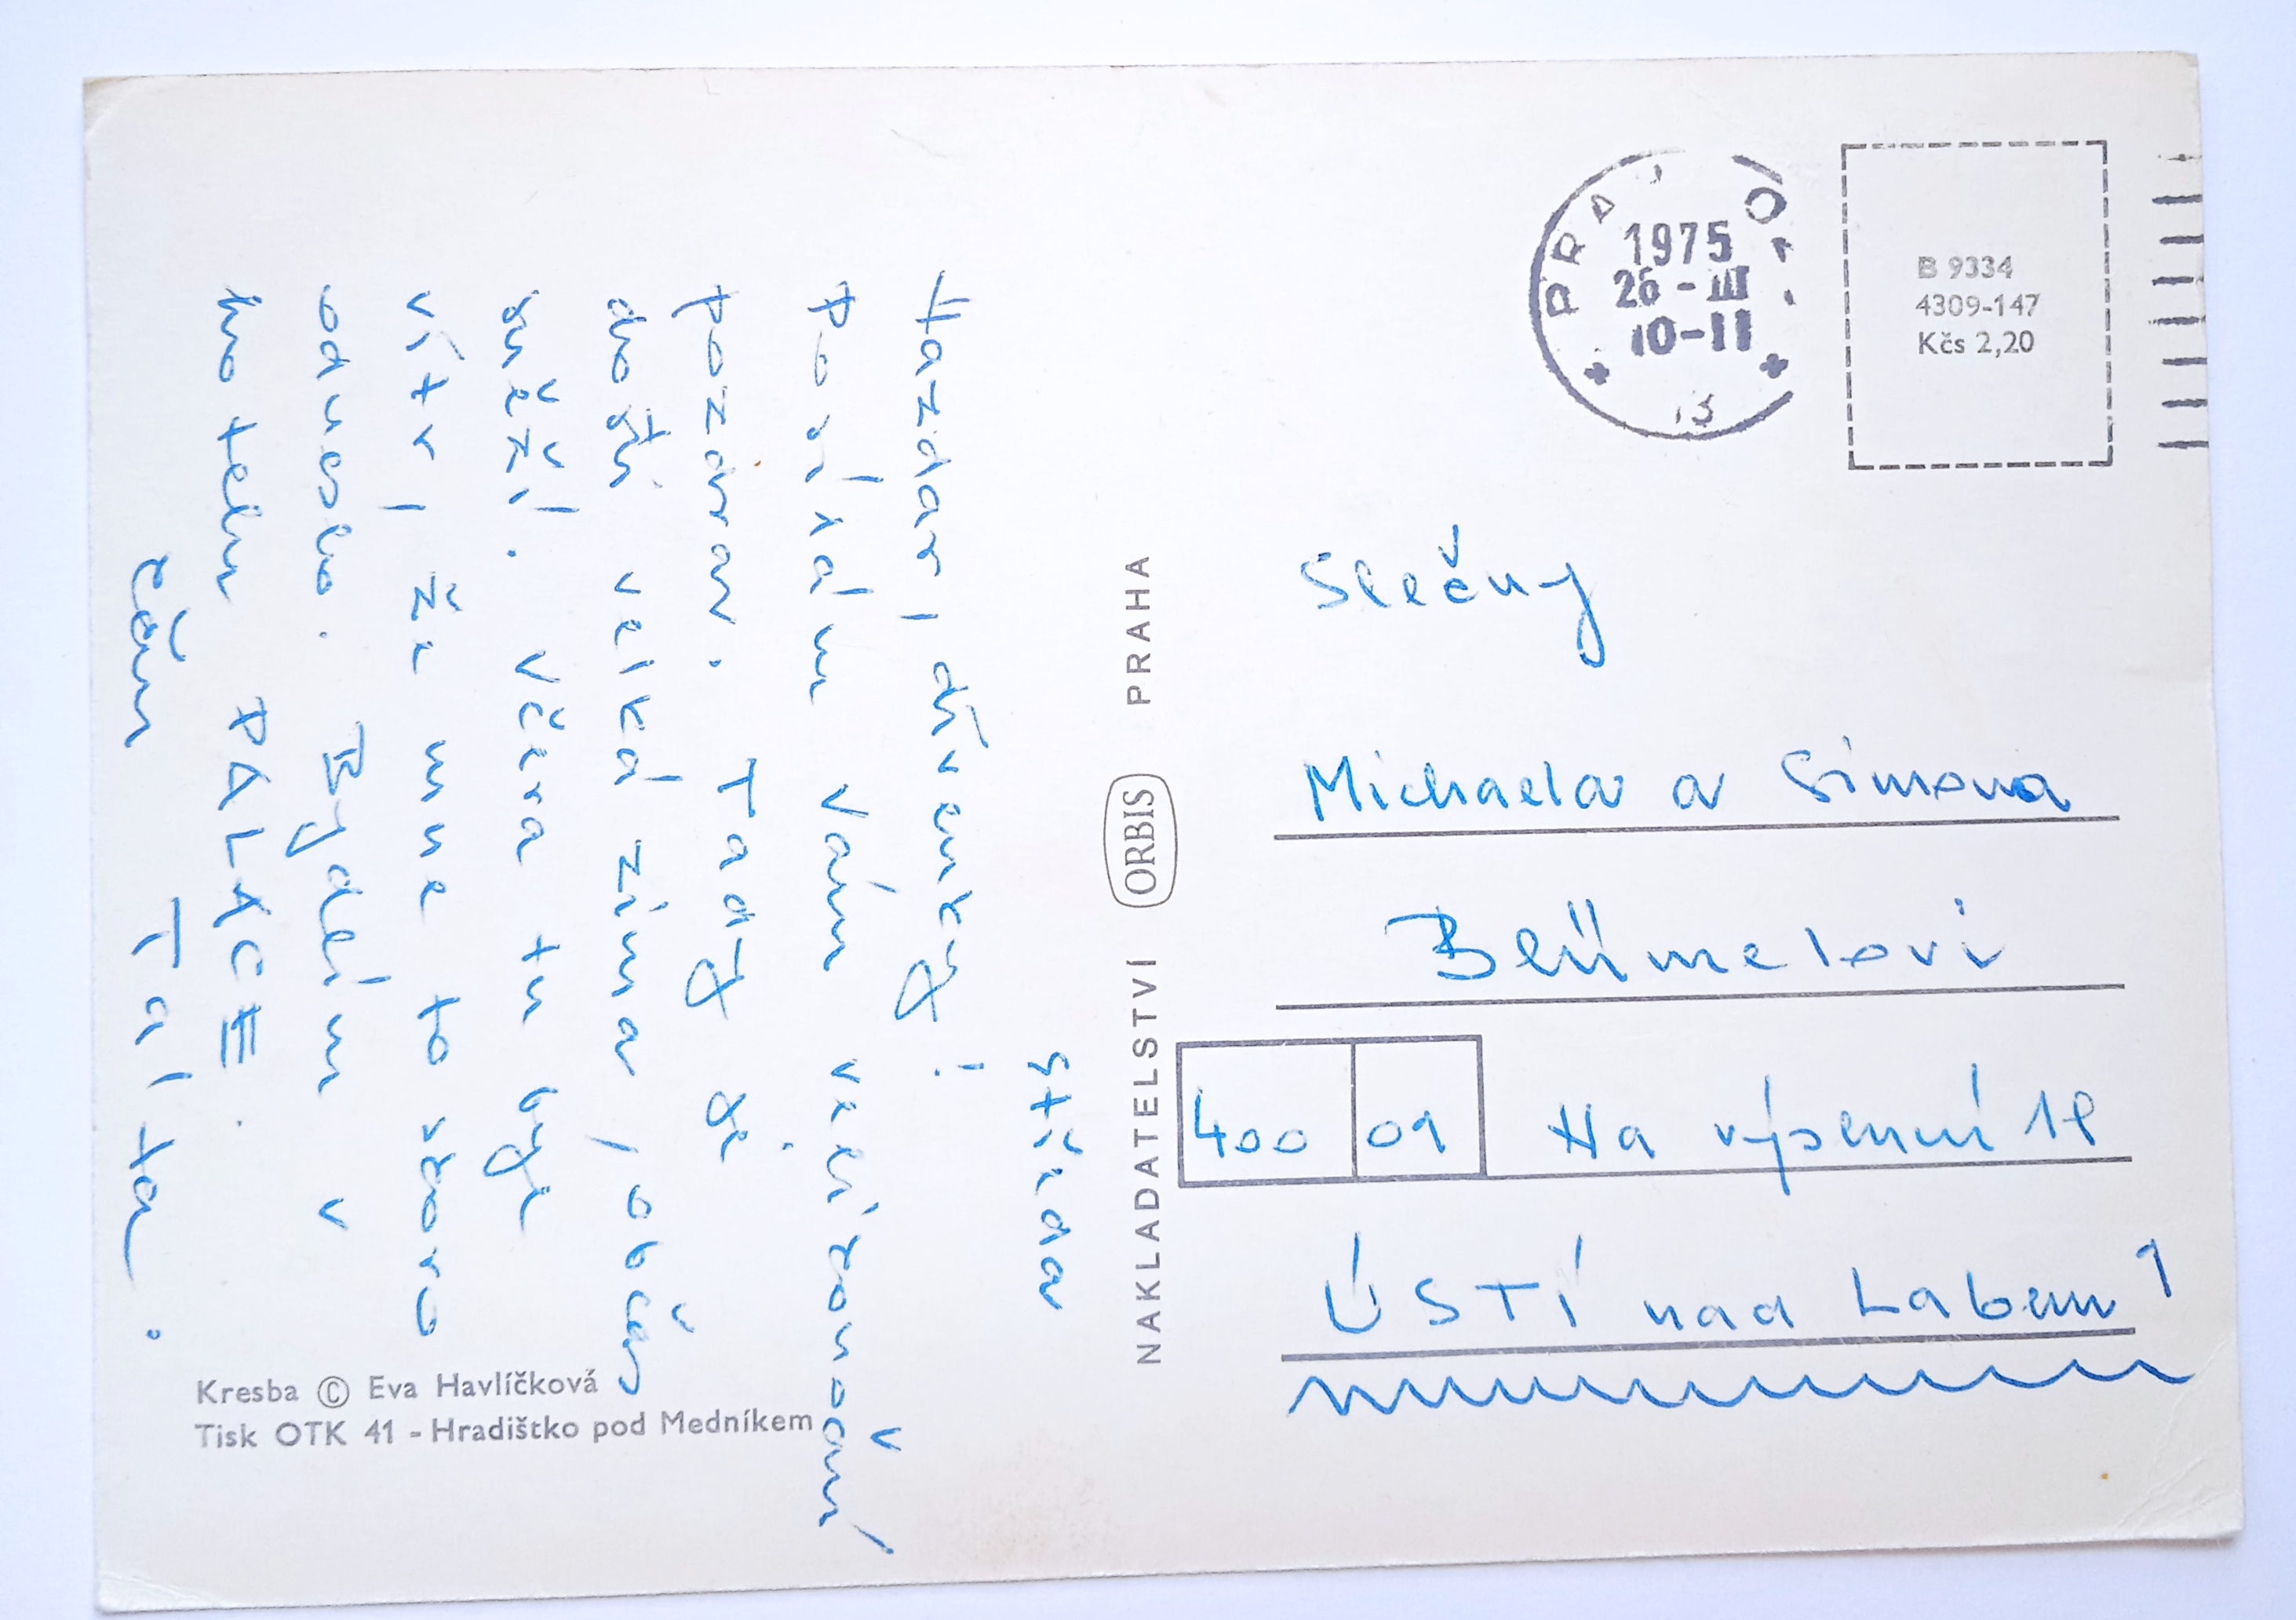 středa
Nazdar, dívenky!
Posílám Vám velikonoční
pozdrav. Tady je
dosti velká zima, občas
sněží. Včera tu byl
vítr, že mne to skoro
odneslo. Bydlím v
hotelu PALACE.
Táta.
Kresba © Eva Havlíčková
Tisk OTK 41 - Hradištko pod Medníkem
NAKLADATELSTVÍ ORBIS PRAHA
1975
26 - III
10-11
B 9334
4309-147
Kčs 2,20
Slečny
Michaela a Simona
Blümelovi
400 01 Na výsluní 18
ÚSTÍ nad Labem 1